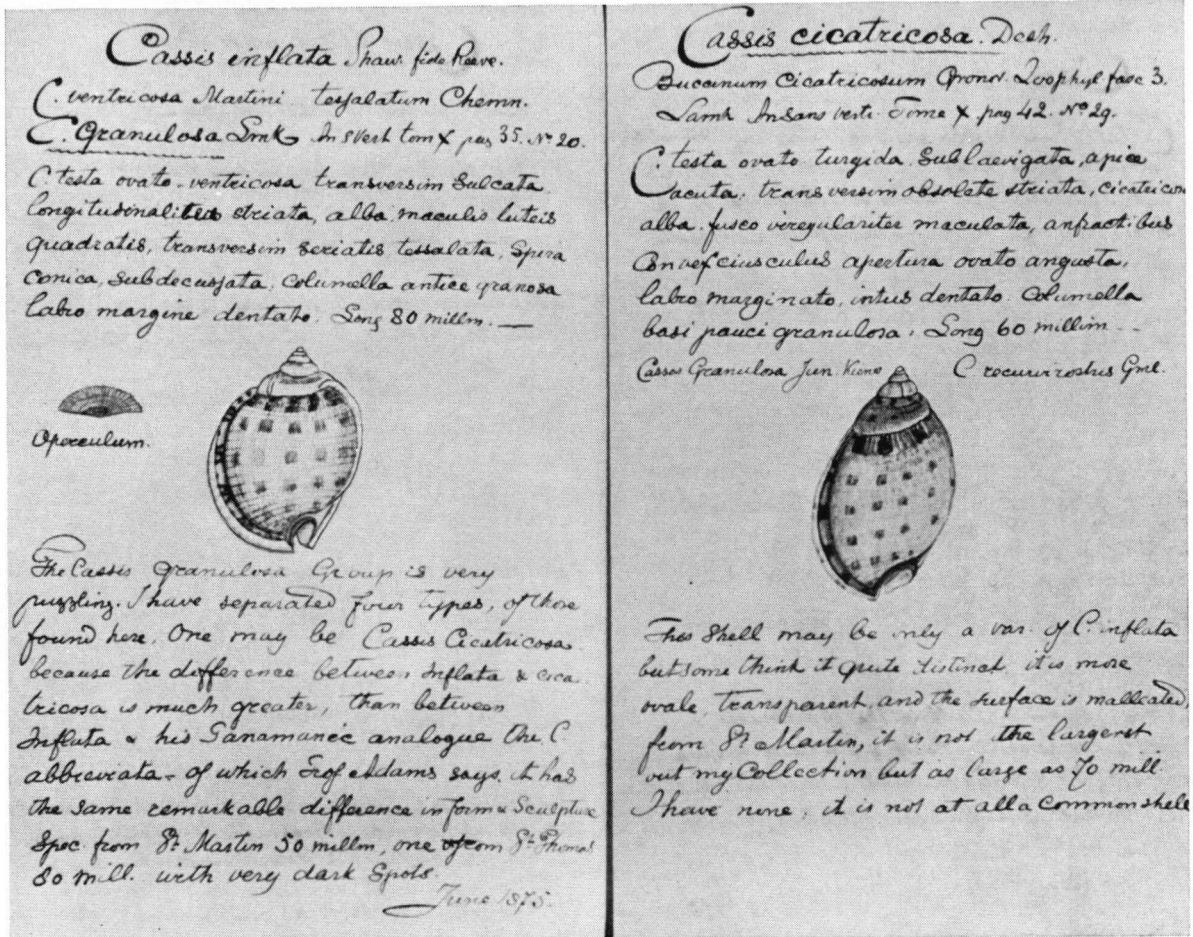 Cassis inflata Shaw. fide Reeve.
C. ventricosa Martini. tessalatum Chemn.
C. Granulosa Lmk An S Vert tom X pag 35. No 20.
C. testa ovato-ventricosa transversim Sulcata
longitudinaliter striata, alba maculis luteis
quadratis, transversim seriatis tessalata, Spira
conica, Subdecussata, Columella antice granosa
labro margine dentato. Long 80 millm. —
Operculum.
The Cassis Granulosa Group is very
puzzling. I have separated four types, of those
found here. One may be Cassis Cicatricosa
because the difference between Inflata & cica
tricosa is much greater, than between
Inflata & his Panamanic analogue the C.
abbreviata - of which Prof Adams says. it had
the same remarkable difference in form & Sculpture
Spec from St Martin 50 millm, one from St Thomas
80 mill. with very dark Spots.
June 1875.
Cassis cicatricosa. Desh.
Buccinum Cicatricosum Gronov. Zoophyl fasc 3.
Lamk An sans vert. Tome X pag 42. No 29.
C. testa ovato turgida, Sublaevigata, apice
acuta, transversim obsolete striata, cicatricosa
alba. fusco irregulariter maculata, anfractibus
Convexiusculus apertura ovato angusta,
labro marginato, intus dentato. Columella
basi pauci granulosa. Long 60 millim --
Cassis Granulosa Jun. Kiene C recurvirostris Gml.
This Shell may be only a var. of C. inflata
but some think it quite distinct it is more
ovale, transparent, and the surface is malleated,
from St Martin, it is not the largest
out my Collection but as large as 70 mill.
I have none, it is not at all a common shell